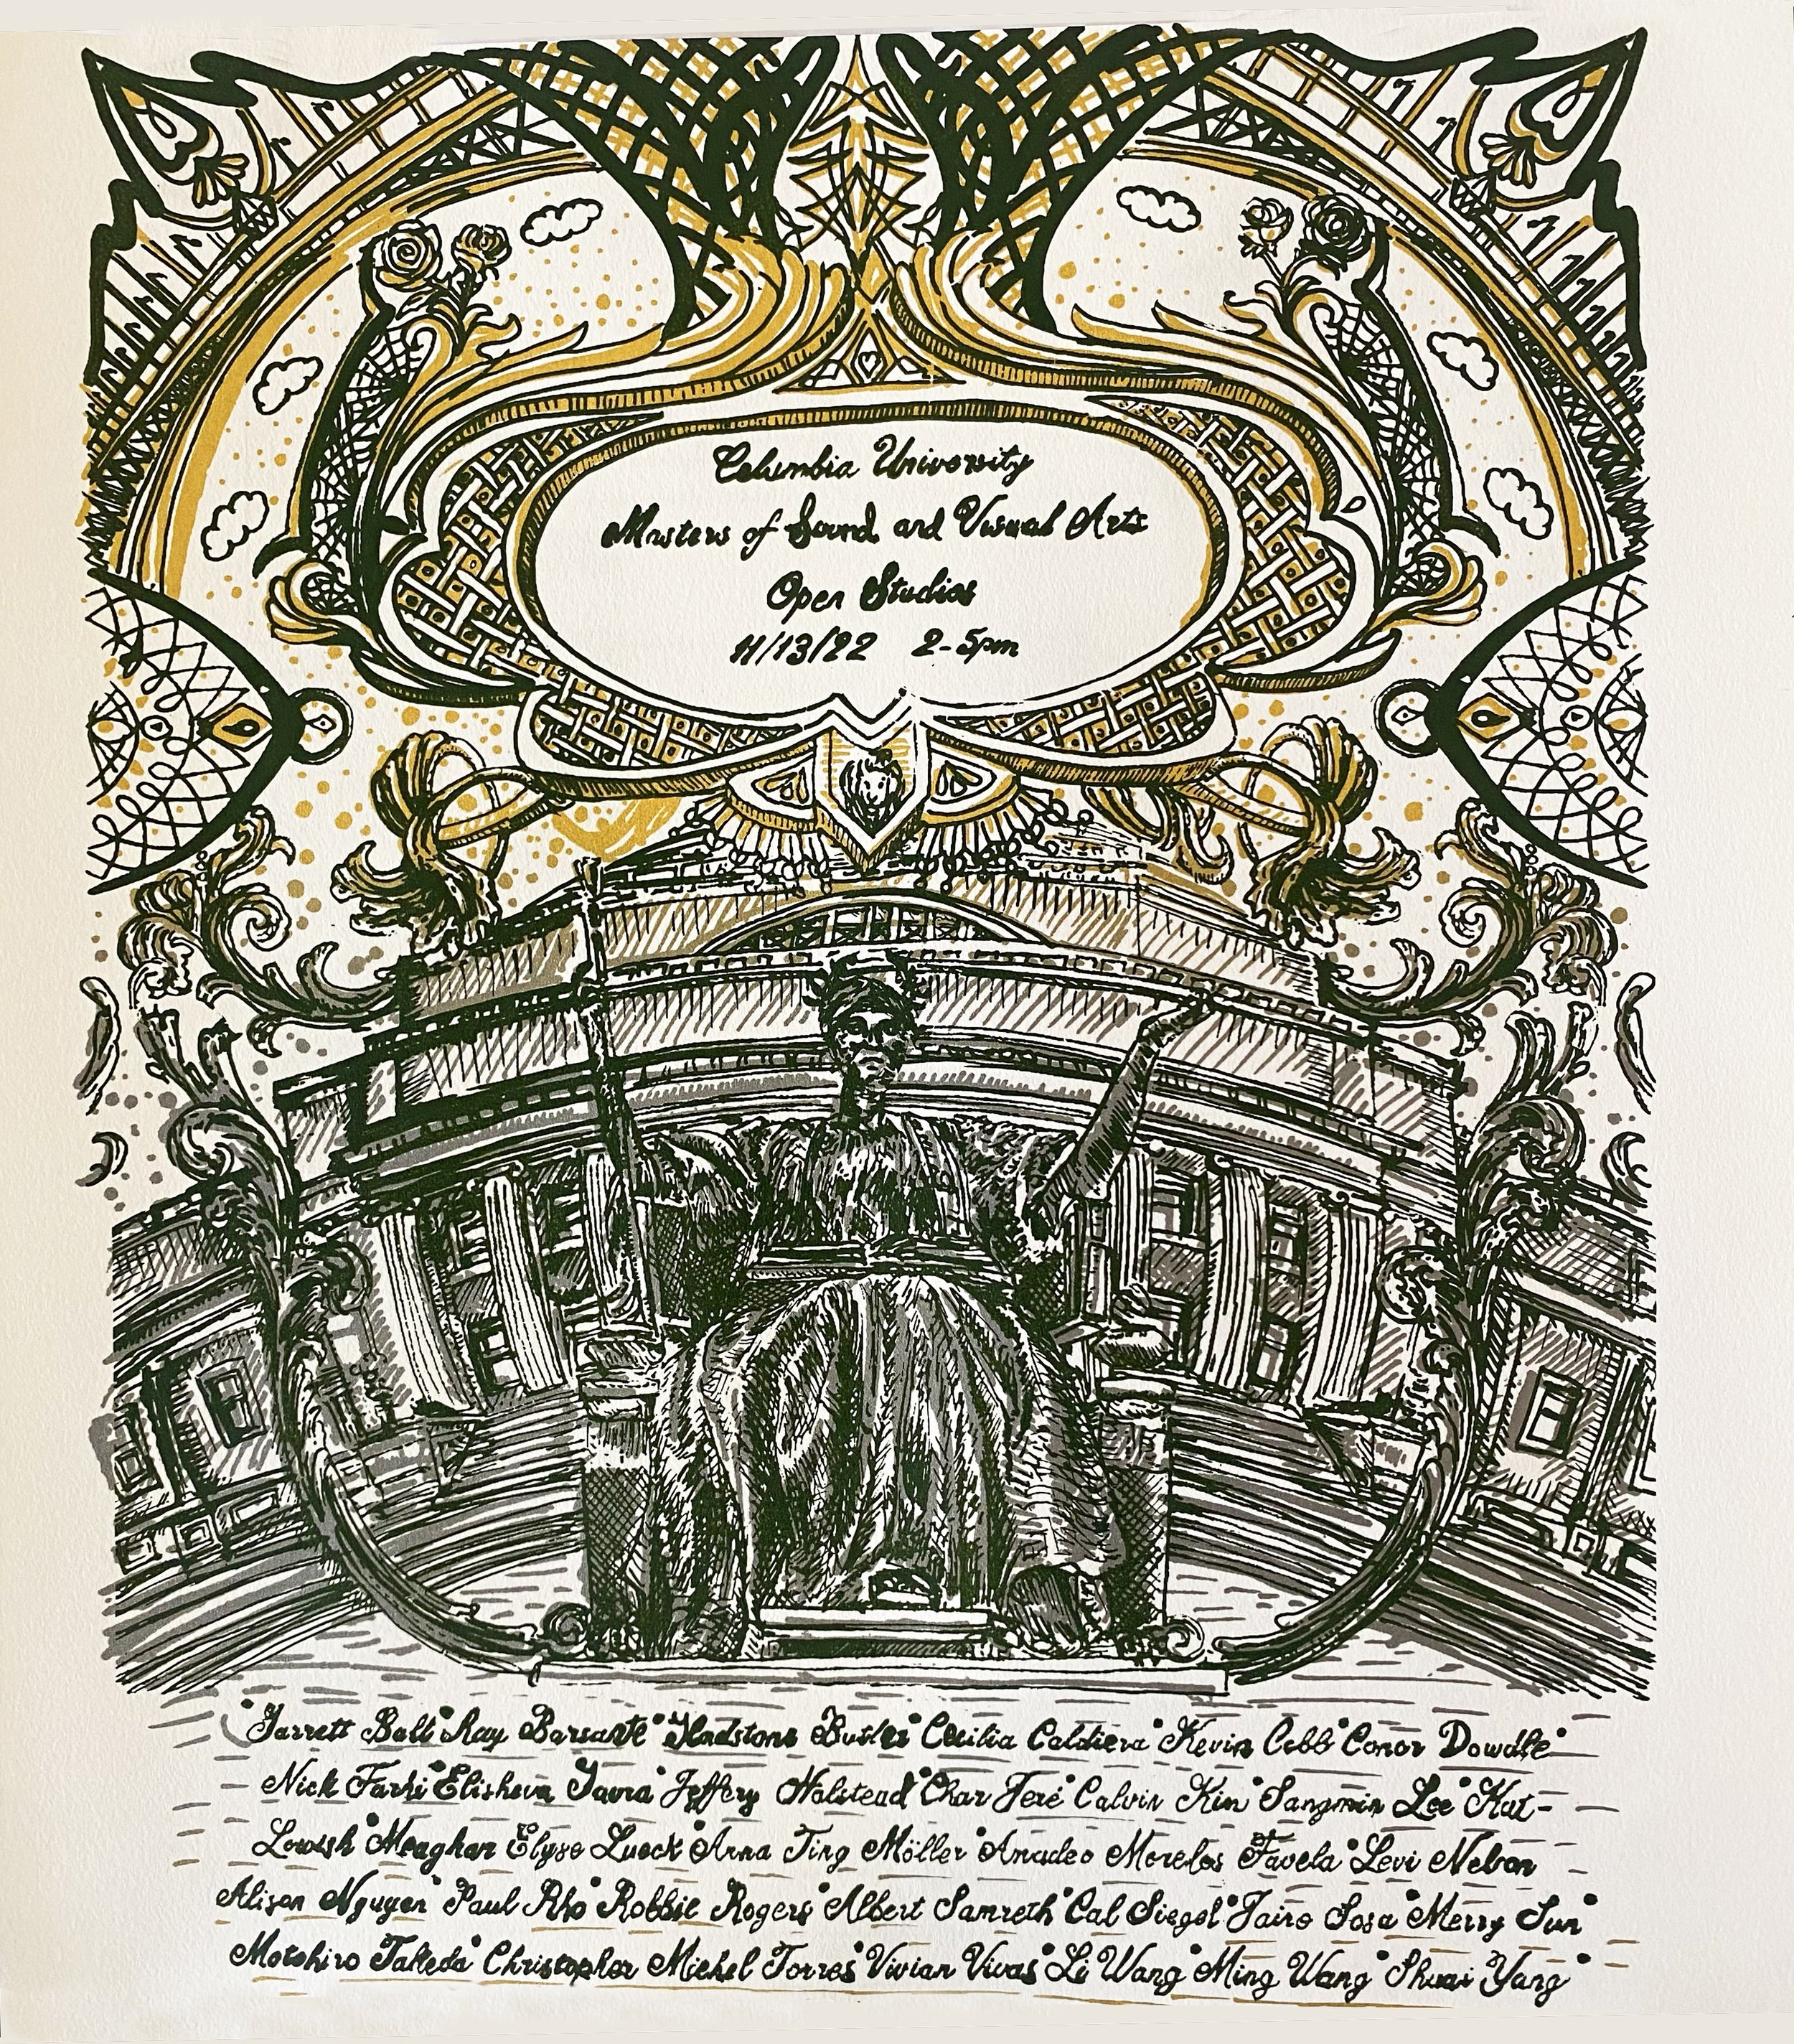 Columbia University
Masters of Sound and Visual Arts
Open Studios
11/13/22 2-5pm
Jarrett Ball • Ray Barsante • Gladstone Butler • Cecilia Caldiera • Kevin Cobb • Conor Dowdle •
Nick Farhi • Elisheva Gavra • Jeffery Halstead • Char Jeré • Calvin Kim • Sangmin Lee • Kat-
Lowish • Meaghan Elyse Lueck • Anna Ting Möller • Amadeo Morelos Favela • Levi Nelson
Alison Nguyen • Paul Rho • Robbie Rogers • Albert Samreth • Cal Siegel • Jairo Sosa • Merry Sun •
Motohiro Takeda • Christopher Michel Torres • Vivian Vivas • Li Wang • Ming Wang • Shuai Yang •